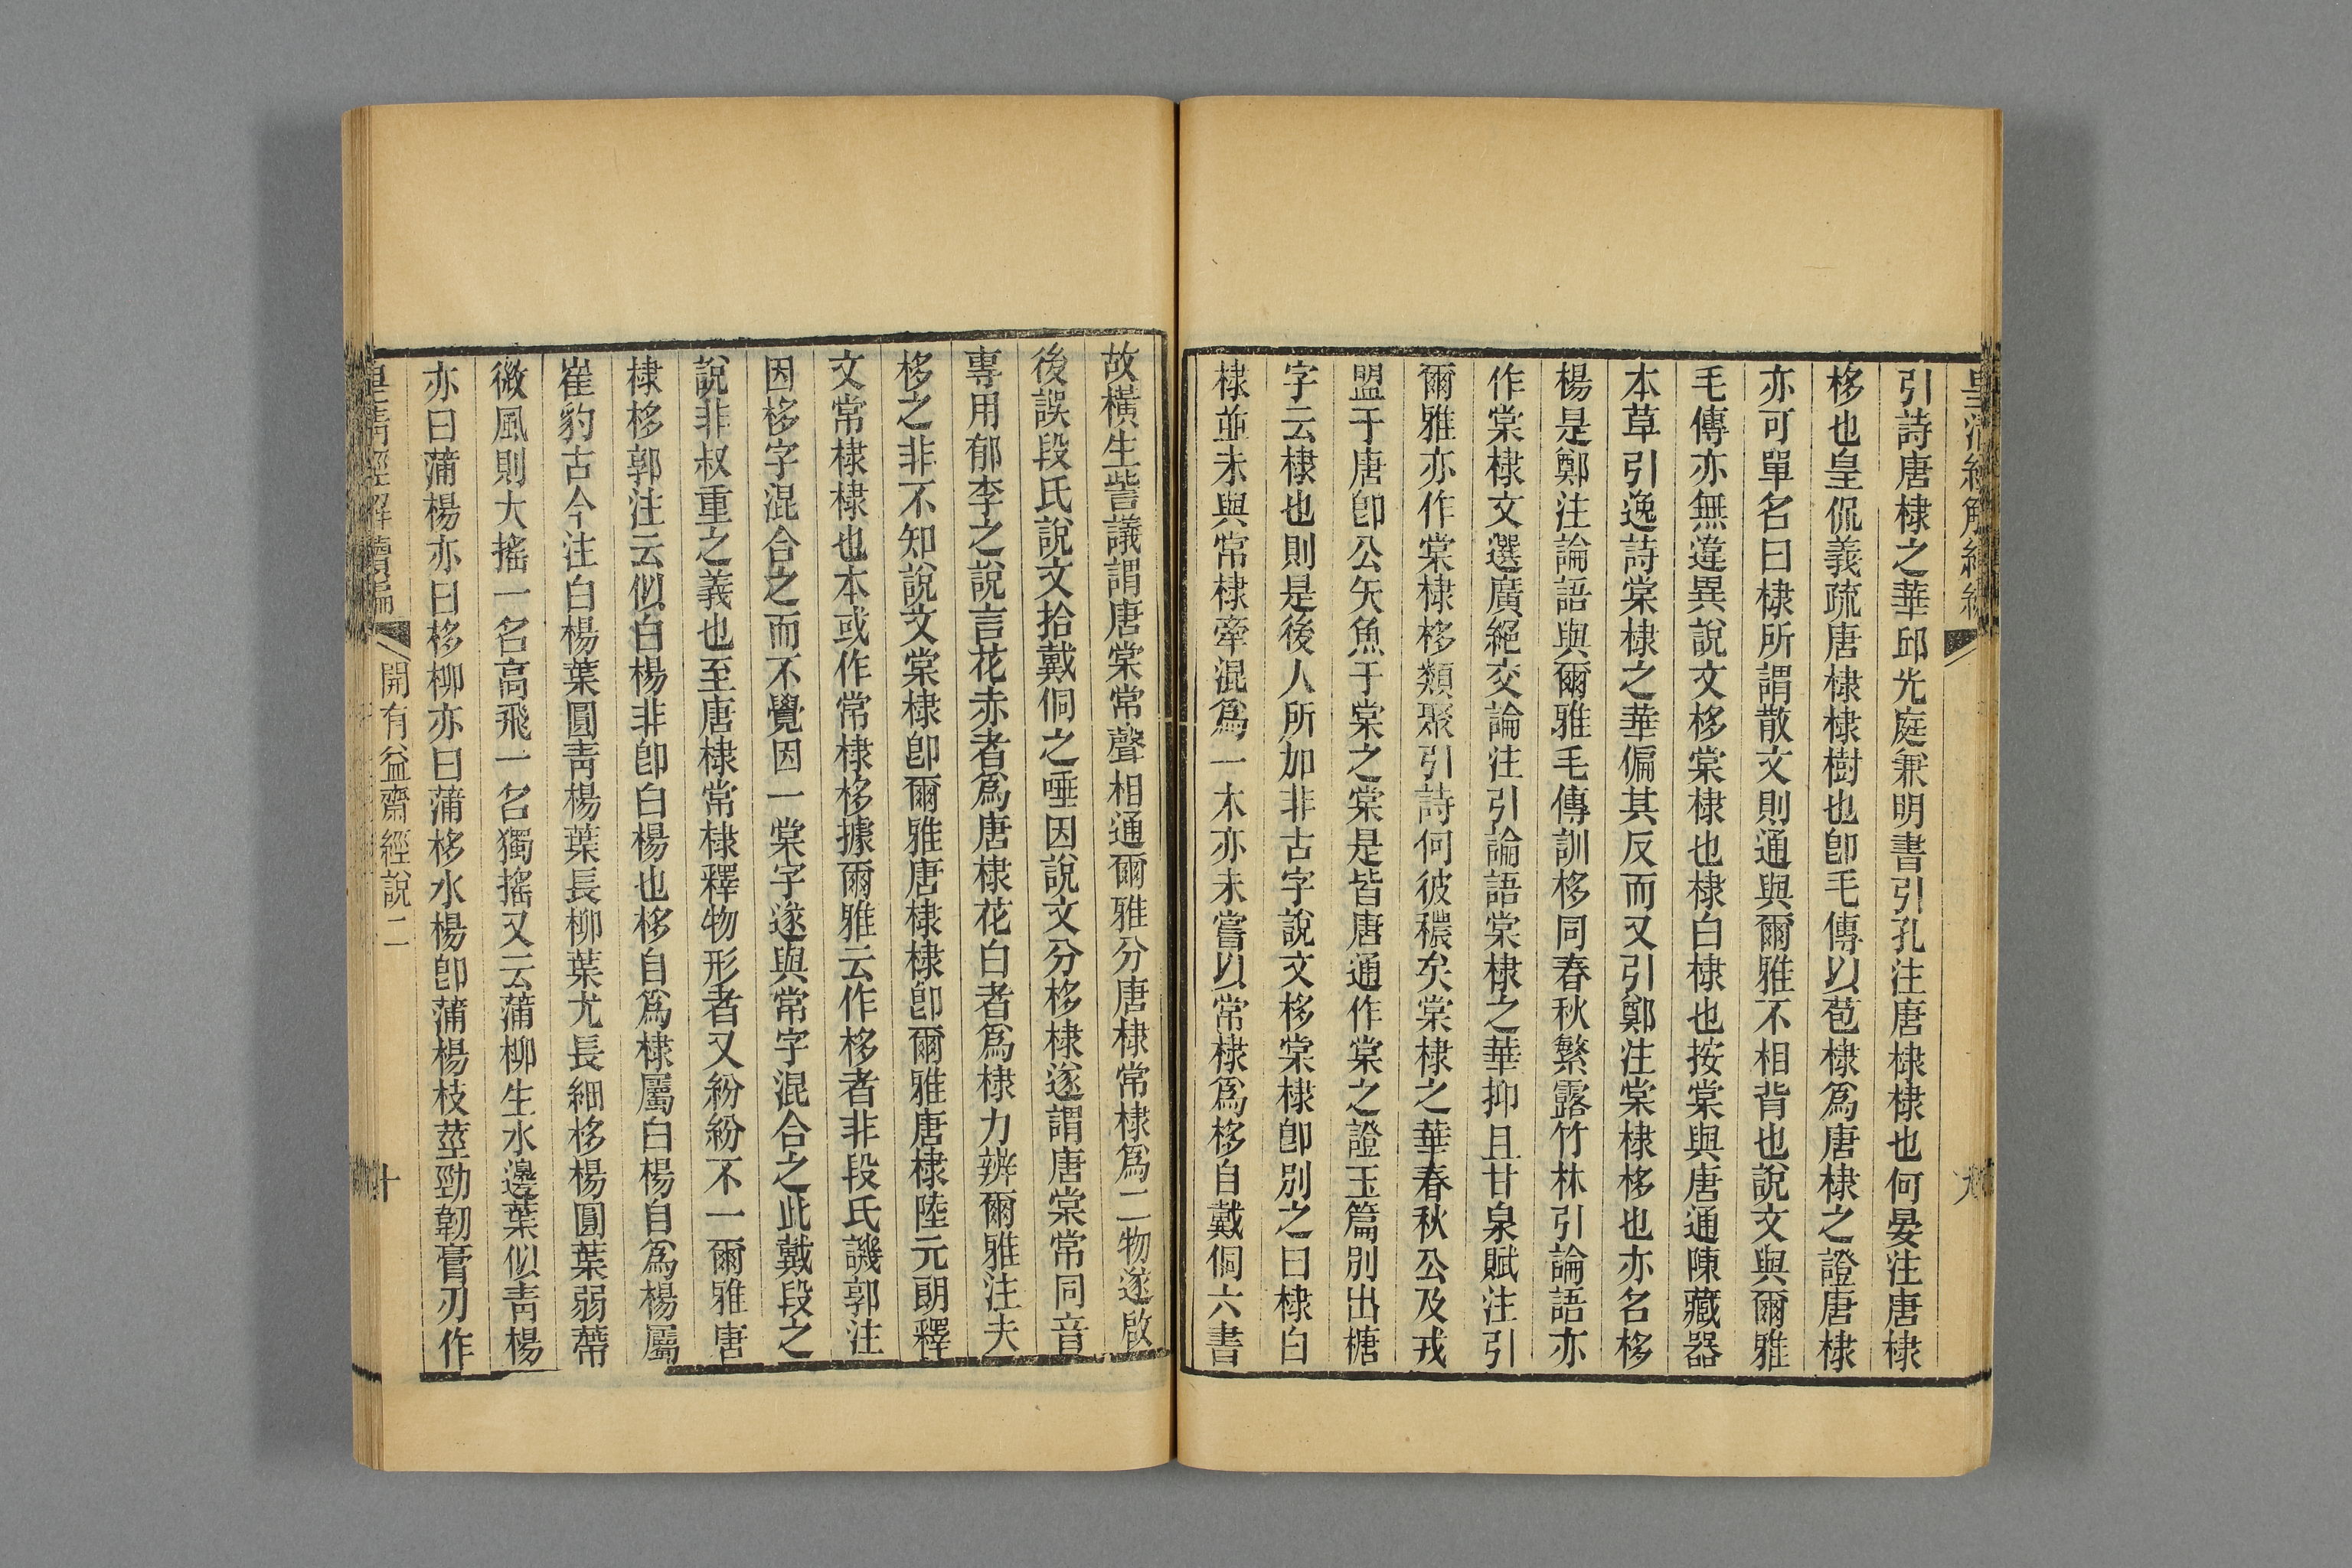 皇清經解續編
九
引詩唐棣之華邱光庭兼明書引孔注唐棣棣也何晏注唐棣
栘也皇侃義疏唐棣棣樹也卽毛傳以苞棣爲唐棣之證唐棣
亦可單名曰棣所謂散文則通與爾雅不相背也說文與爾雅
毛傳亦無違異說文栘棠棣也棣白棣也按棠與唐通陳藏器
本草引逸詩棠棣之華偏其反而又引鄭注棠棣栘也亦名栘
楊是鄭注論語與爾雅毛傳訓栘同春秋繁露竹林引論語亦
作棠棣文選廣絕交論注引論語棠棣之華抑且甘泉賦注引
爾雅亦作棠棣栘類聚引詩何彼穠矣棠棣之華春秋公及戎
盟于唐卽公矢魚于棠之棠是皆唐通作棠之證玉篇別出榶
字云棣也則是後人所加非古字說文栘棠棣卽別之曰棣白
棣並未與常棣牽混爲一木亦未嘗以常棣爲栘自戴侗六書
故橫生訾議謂唐棠常聲相通爾雅分唐棣常棣爲二物遂啟
後誤段氏說文拾戴侗之唾因說文分栘棣遂謂唐棠常同音
專用郁李之說言花赤者爲唐棣花白者爲棣力辨爾雅注夫
栘之非不知說文棠棣卽爾雅唐棣棣卽爾雅唐棣陸元朗釋
文常棣棣也本或作常棣栘據爾雅云作栘者非段氏譏郭注
因栘字混合之而不覺因一棠字遂與常字混合之此戴段之
說非叔重之義也至唐棣常棣釋物形者又紛紛不一爾雅唐
棣栘郭注云似白楊非卽白楊也栘自爲棣屬白楊自爲楊屬
崔豹古今注白楊葉圓靑楊葉長柳葉尤長細栘楊圓葉弱蔕
微風則大搖一名高飛一名獨搖又云蒲柳生水邊葉似靑楊
亦曰蒲楊亦曰栘柳亦曰蒲栘水楊卽蒲楊枝莖勁韌膏刃作
皇淸經解續編
開有益齋經說二
十